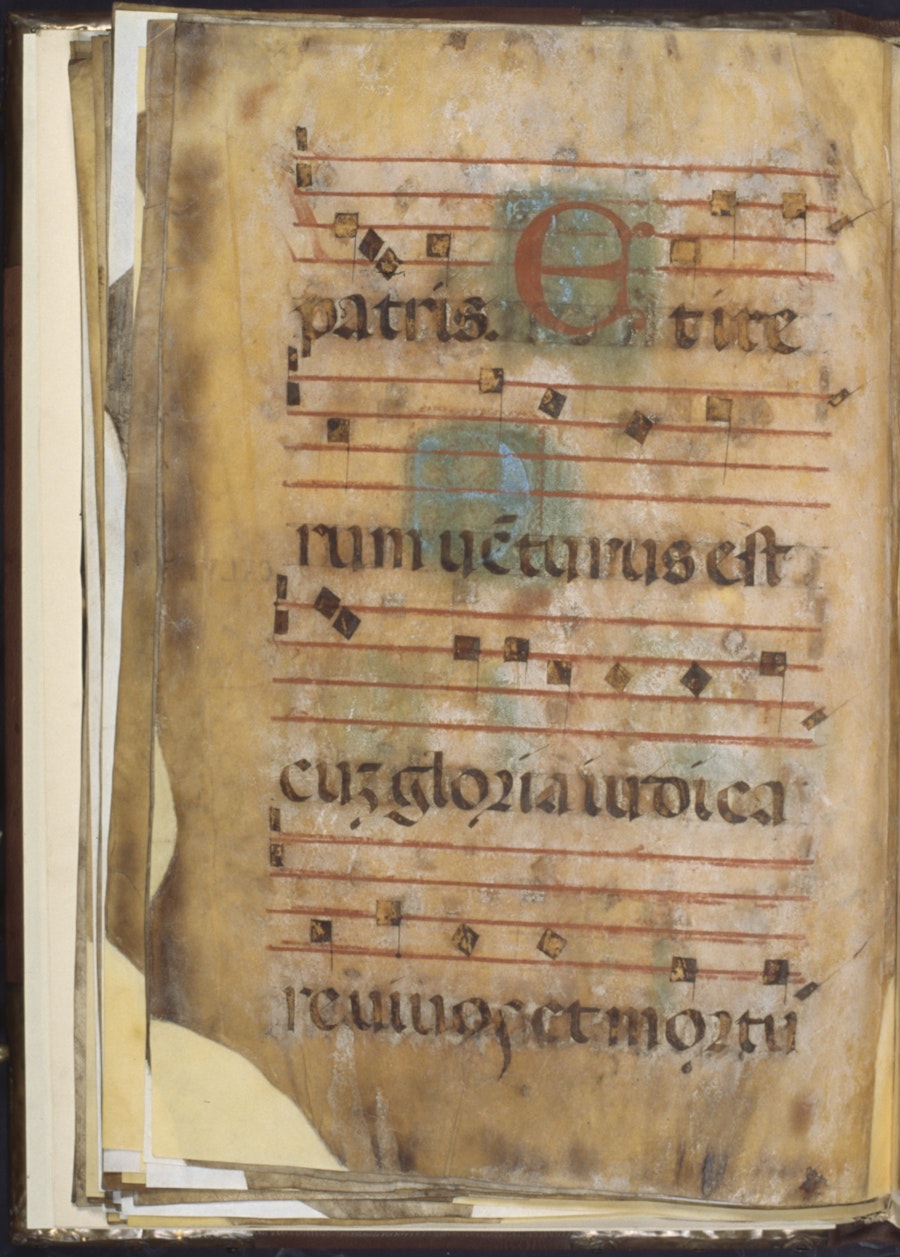 patris. E t ite
rum uēturus est
cuʒ gloria iudica
re uiuos et mortu